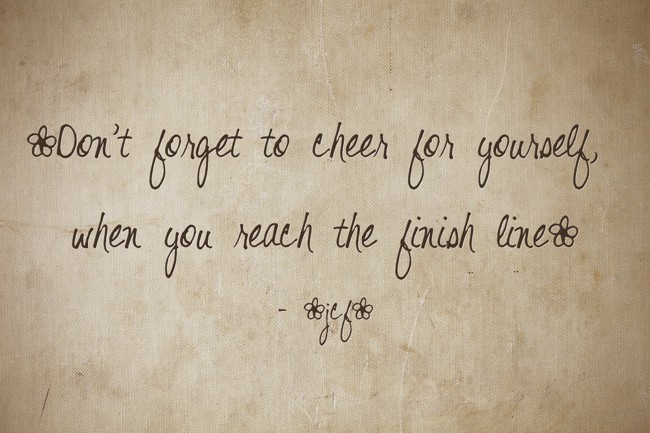 ❀Don't forget to cheer for yourself,
when you reach the finish line❀
- ❀jcf❀